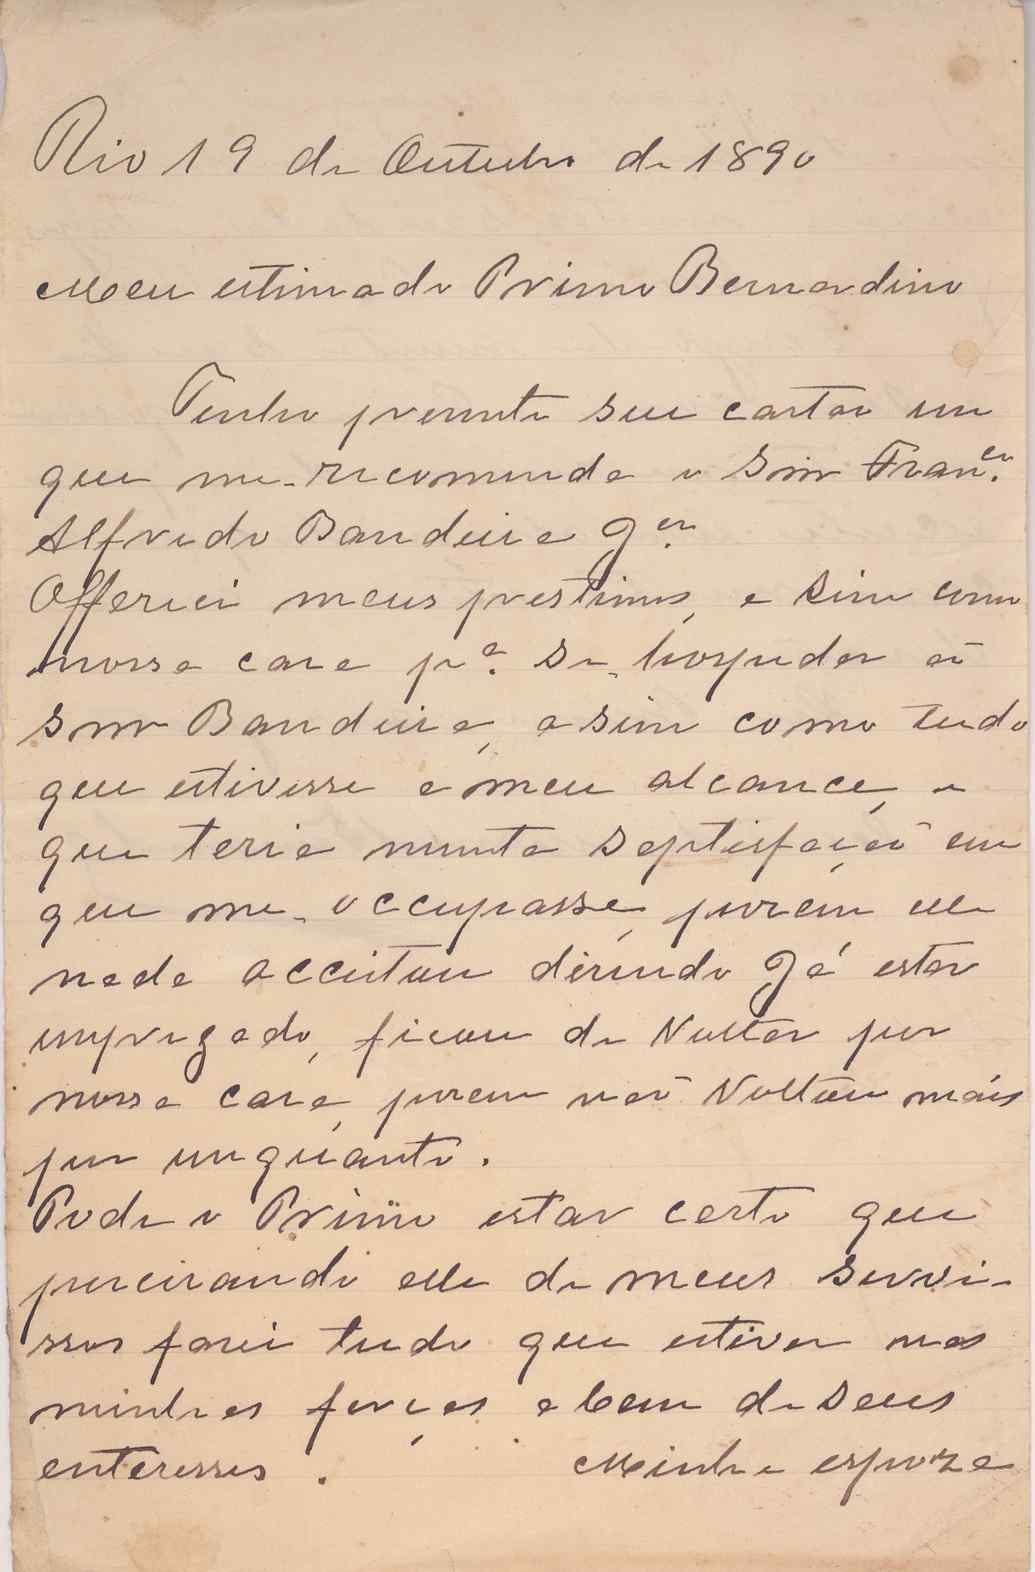 Rio 19 de Outubro de 1890
Meu estimado Primo Bernardino
Tenho prezente sua carta em
que me-recomenda o Snr Franco.
Alfredo Bandeira Jor.
Offerici meus prestimos, a sim como
nossa caza pa. se-hospedar ao
Snr Bandeira, asim como tudo
que estivesse a meu alcance, e
que teria munta saptisfação em
que me-occupasse, porem elle
nada acceitou dizendo Já estar
impregado, ficou de Voltar por
nossa caza, porem não Voltou mais
por inquanto.
Pode o Primo estar certo que
percizando elle de meus servi-
ssos farei tudo que estiver nas
minhas forças a bem de seus
enteresses. Minha espoza